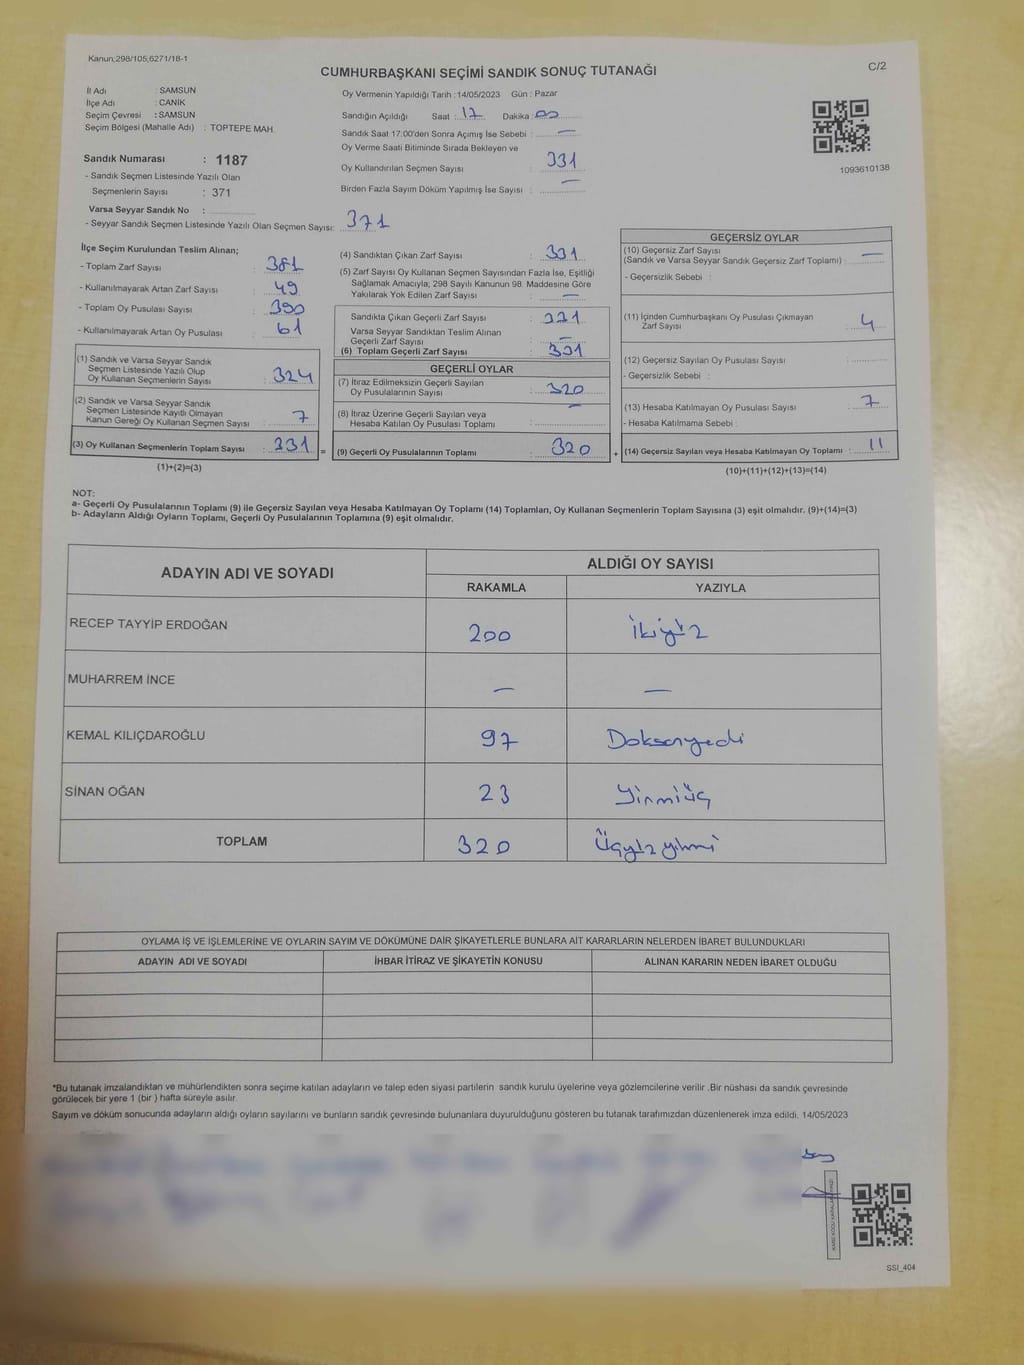 Kanun;298/105,6271/18-1
C/2
CUMHURBAŞKANI SEÇİMİ SANDIK SONUÇ TUTANAĞI
İl Adı : SAMSUN
İlçe Adı : CANİK
Seçim Çevresi : SAMSUN
Seçim Bölgesi (Mahalle Adı) : TOPTEPE MAH.
Sandık Numarası : 1187
- Sandık Seçmen Listesinde Yazılı Olan
Seçmenlerin Sayısı : 371
Varsa Seyyar Sandık No :
- Seyyar Sandık Seçmen Listesinde Yazılı Olan Seçmen Sayısı: 371
Oy Vermenin Yapıldığı Tarih :14/05/2023 Gün : Pazar
Sandığın Açıldığı Saat : 17 Dakika : 00
Sandık Saat 17:00'den Sonra Açımış İse Sebebi : —
Oy Verme Saati Bitiminde Sırada Bekleyen ve
Oy Kullandırılan Seçmen Sayısı : 331
Birden Fazla Sayım Döküm Yapılmış İse Sayısı : —
1093610138
İlçe Seçim Kurulundan Teslim Alınan;
- Toplam Zarf Sayısı : 381
- Kullanılmayarak Artan Zarf Sayısı : 49
- Toplam Oy Pusulası Sayısı : 390
- Kullanılmayarak Artan Oy Pusulası : 61
(1) Sandık ve Varsa Seyyar Sandık
Seçmen Listesinde Yazılı Olup
Oy Kullanan Seçmenlerin Sayısı : 324
(2) Sandık ve Varsa Seyyar Sandık
Seçmen Listesinde Kayıtlı Olmayan
Kanun Gereği Oy Kullanan Seçmen Sayısı : 7
(3) Oy Kullanan Seçmenlerin Toplam Sayısı : 331 =
(1)+(2)=(3)
(4) Sandıktan Çıkan Zarf Sayısı : 331
(5) Zarf Sayısı Oy Kullanan Seçmen Sayısından Fazla İse, Eşitliği
Sağlamak Amacıyla; 298 Sayılı Kanunun 98. Maddesine Göre
Yakılarak Yok Edilen Zarf Sayısı : —
Sandıkta Çıkan Geçerli Zarf Sayısı : 331
Varsa Seyyar Sandıktan Teslim Alınan
Geçerli Zarf Sayısı : —
(6) Toplam Geçerli Zarf Sayısı : 331
GEÇERLİ OYLAR
(7) İtiraz Edilmeksizin Geçerli Sayılan
Oy Pusulalarının Sayısı : 320
(8) İtiraz Üzerine Geçerli Sayılan veya
Hesaba Katılan Oy Pusulası Toplamı : —
(9) Geçerli Oy Pusulalarının Toplamı : 320 +
GEÇERSİZ OYLAR
(10) Geçersiz Zarf Sayısı
(Sandık ve Varsa Seyyar Sandık Geçersiz Zarf Toplamı) : —
- Geçersizlik Sebebi :
(11) İçinden Cumhurbaşkanı Oy Pusulası Çıkmayan
Zarf Sayısı : 4
(12) Geçersiz Sayılan Oy Pusulası Sayısı :
- Geçersizlik Sebebi :
(13) Hesaba Katılmayan Oy Pusulası Sayısı : 7
- Hesaba Katılmama Sebebi :
(14) Geçersiz Sayılan veya Hesaba Katılmayan Oy Toplamı : 11
(10)+(11)+(12)+(13)=(14)
NOT:
a- Geçerli Oy Pusulalarının Toplamı (9) ile Geçersiz Sayılan veya Hesaba Katılmayan Oy Toplamı (14) Toplamları, Oy Kullanan Seçmenlerin Toplam Sayısına (3) eşit olmalıdır. (9)+(14)=(3)
b- Adayların Aldığı Oyların Toplamı, Geçerli Oy Pusulalarının Toplamına (9) eşit olmalıdır.
ADAYIN ADI VE SOYADI ALDIĞI OY SAYISI
RAKAMLA YAZIYLA
RECEP TAYYİP ERDOĞAN 200 İkiyüz
MUHARREM İNCE — —
KEMAL KILIÇDAROĞLU 97 Doksanyedi
SİNAN OĞAN 23 Yirmiüç
TOPLAM 320 Üçyüzyirmi
OYLAMA İŞ VE İŞLEMLERİNE VE OYLARIN SAYIM VE DÖKÜMÜNE DAİR ŞİKAYETLERLE BUNLARA AİT KARARLARIN NELERDEN İBARET BULUNDUKLARI
ADAYIN ADI VE SOYADI İHBAR İTİRAZ VE ŞİKAYETİN KONUSU ALINAN KARARIN NEDEN İBARET OLDUĞU
*Bu tutanak imzalandıktan ve mühürlendikten sonra seçime katılan adayların ve talep eden siyasi partilerin sandık kurulu üyelerine veya gözlemcilerine verilir .Bir nüshası da sandık çevresinde
görülecek bir yere 1 (bir ) hafta süreyle asılır.
Sayım ve döküm sonucunda adayların aldığı oyların sayılarını ve bunların sandık çevresinde bulunanlara duyurulduğunu gösteren bu tutanak tarafımızdan düzenlenerek imza edildi. 14/05/2023
SSI_404